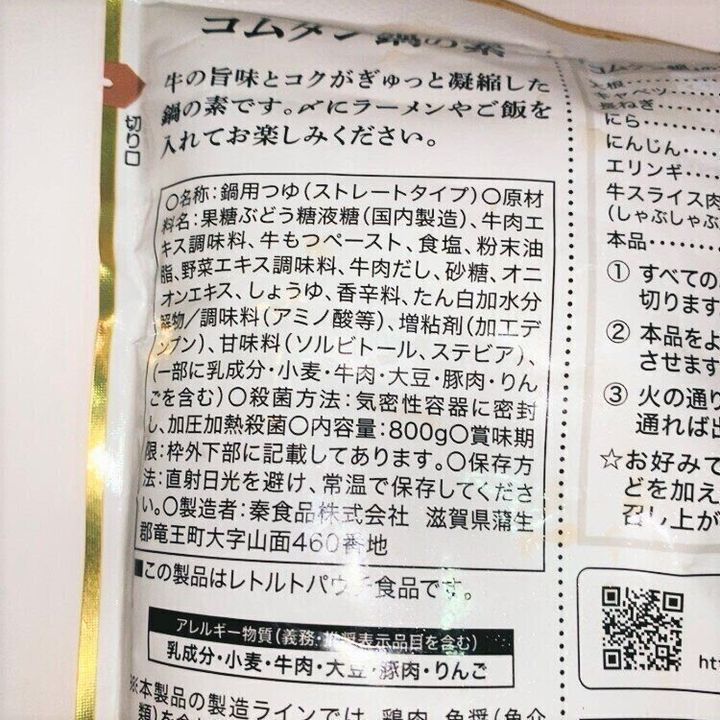 コムタン鍋の素
牛の旨味とコクがぎゅっと凝縮した
鍋の素です。〆にラーメンやご飯を
入れてお楽しみください。
切り口
〇名称:鍋用つゆ(ストレートタイプ)〇原材
料名:果糖ぶどう糖液糖(国内製造)、牛肉エ
キス調味料、牛もつペースト、食塩、粉末油
脂、野菜エキス調味料、牛肉だし、砂糖、オニ
オンエキス、しょうゆ、香辛料、たん白加水分
解物/調味料(アミノ酸等)、増粘剤(加工デ
ンプン)、甘味料(ソルビトール、ステビア)、
(一部に乳成分・小麦・牛肉・大豆・豚肉・りん
ごを含む)〇殺菌方法:気密性容器に密封
し、加圧加熱殺菌〇内容量:800g〇賞味期
限:枠外下部に記載してあります。〇保存方
法:直射日光を避け、常温で保存してくださ
い。〇製造者:秦食品株式会社 滋賀県蒲生
郡竜王町大字山面460番地
■この製品はレトルトパウチ食品です。
アレルギー物質(義務・推奨表示品目を含む)
乳成分・小麦・牛肉・大豆・豚肉・りんご
※本製品の製造ラインでは、鶏肉、魚醤(魚介
類)を含
キャベツ
長ねぎ
にら
にんじん
エリンギ
牛スライス肉
(しゃぶしゃぶ
本品
① すべての
切ります
② 本品をよ
させます
③ 火の通り
通れば出
☆お好みで
どを加え
召し上が